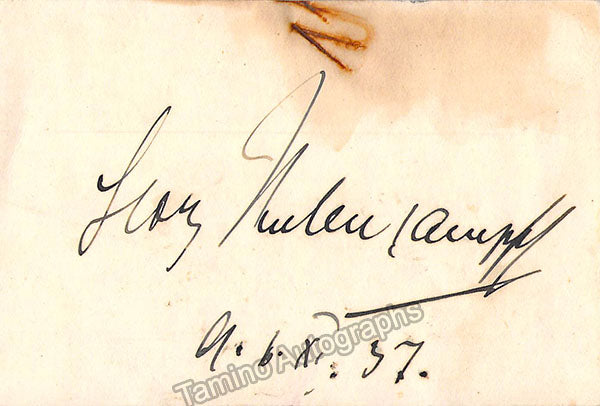 Georg Kulenkampff
a. 6. XI. 37.
Tamino Autographs